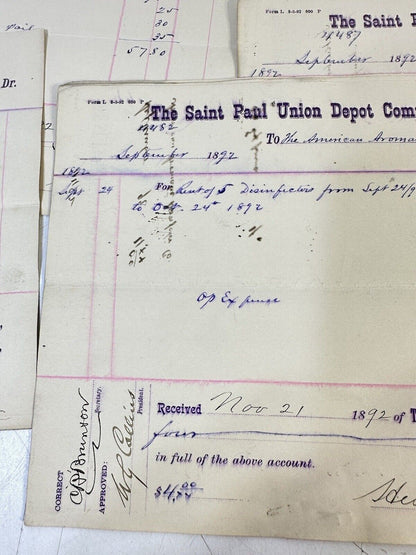 pail
25
30
35
5780
Dr.
Form L 8-1-92 600 P
The Saint P
4487
September 1892
1892
Form L 8-1-92 600 P
The Saint Paul Union Depot Comp
4482
To The American Aroma
September 1892
1892
Sept 24 For Rent of 5 Disinfectors from Sept 24/9
to Oct. 24th 1892
Op Expense
CORRECT
Secretary.
APPROVED:
W G Collins
President.
Received Nov 21 1892 of T
four
in full of the above account.
$4.00